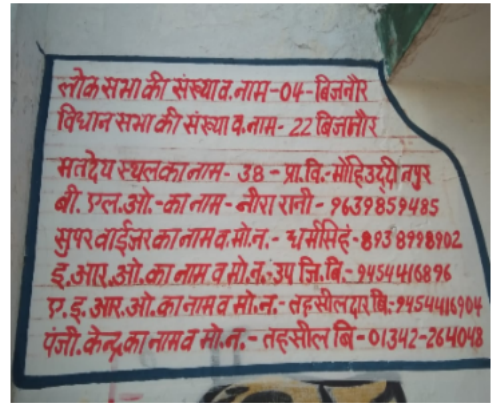 लोक सभा की संख्या व. नाम-04-बिजनौर
विधान सभा की संख्या व. नाम- 22 बिजनौर
मतदेय स्थल का नाम- 38 - प्रा.वि.-मौहिउद्दीनपुर
बी. एल.ओ.-का नाम- नीरा रानी- 9639859485
सुपरवाईजर का नाम व.मो.न.- धर्मसिंह-8938998902
इ.आर.ओ.का नाम व मो.न.-उप जि.बि.-9454416896
ए.इ.आर.ओ.का नाम व मो.न.- तहसीलदार बि.-9454416904
पंजी.केन्द्र का नाम व मो.न.- तहसील बि-01342-264048